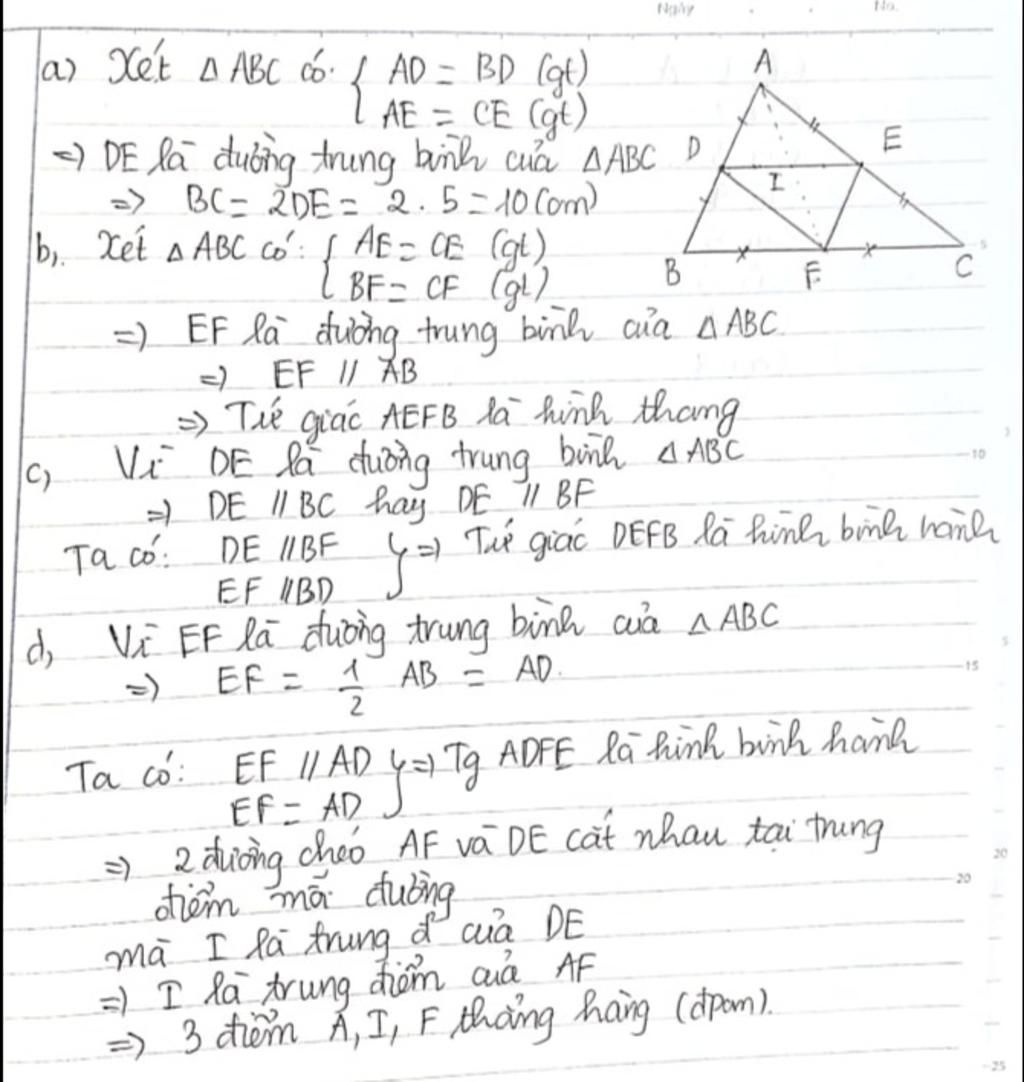 Ngày No.
a) Xét △ ABC có: { AD = BD (gt)
AE = CE (gt)
=> DE là đường trung bình của △ABC
=> BC = 2DE = 2 . 5 = 10 (cm)
A
D
E
I
B
F
C
b, Xét △ ABC có: { AE = CE (gt)
BF = CF (gt)
=> EF là đường trung bình của △ ABC
=> EF // AB
=> Tứ giác AEFB là hình thang
c, Vì DE là đường trung bình △ABC
=> DE // BC hay DE // BF
Ta có: DE // BF } => Tứ giác DEFB là hình bình hành
EF // BD
d, Vì EF là đường trung bình của △ ABC
=> EF = 1/2 AB = AD.
Ta có: EF // AD } => Tg ADFE là hình bình hành
EF = AD
=> 2 đường chéo AF và DE cắt nhau tại trung
điểm mỗi đường
mà I là trung đ' của DE
=> I là trung điểm của AF
=> 3 điểm A, I, F thẳng hàng (đpcm).
5
10
15
20
25